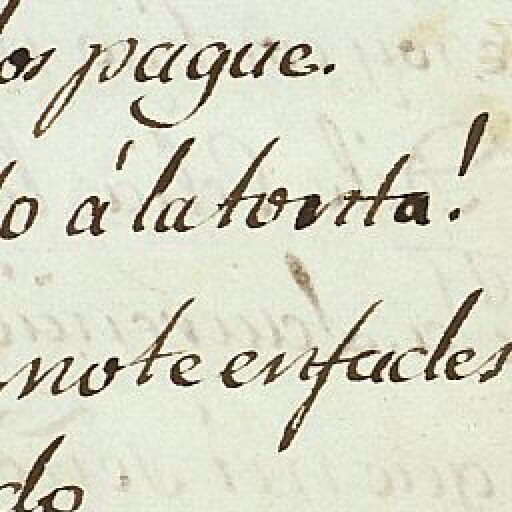 os pague.
lo á la tonta!
no te enfades
do